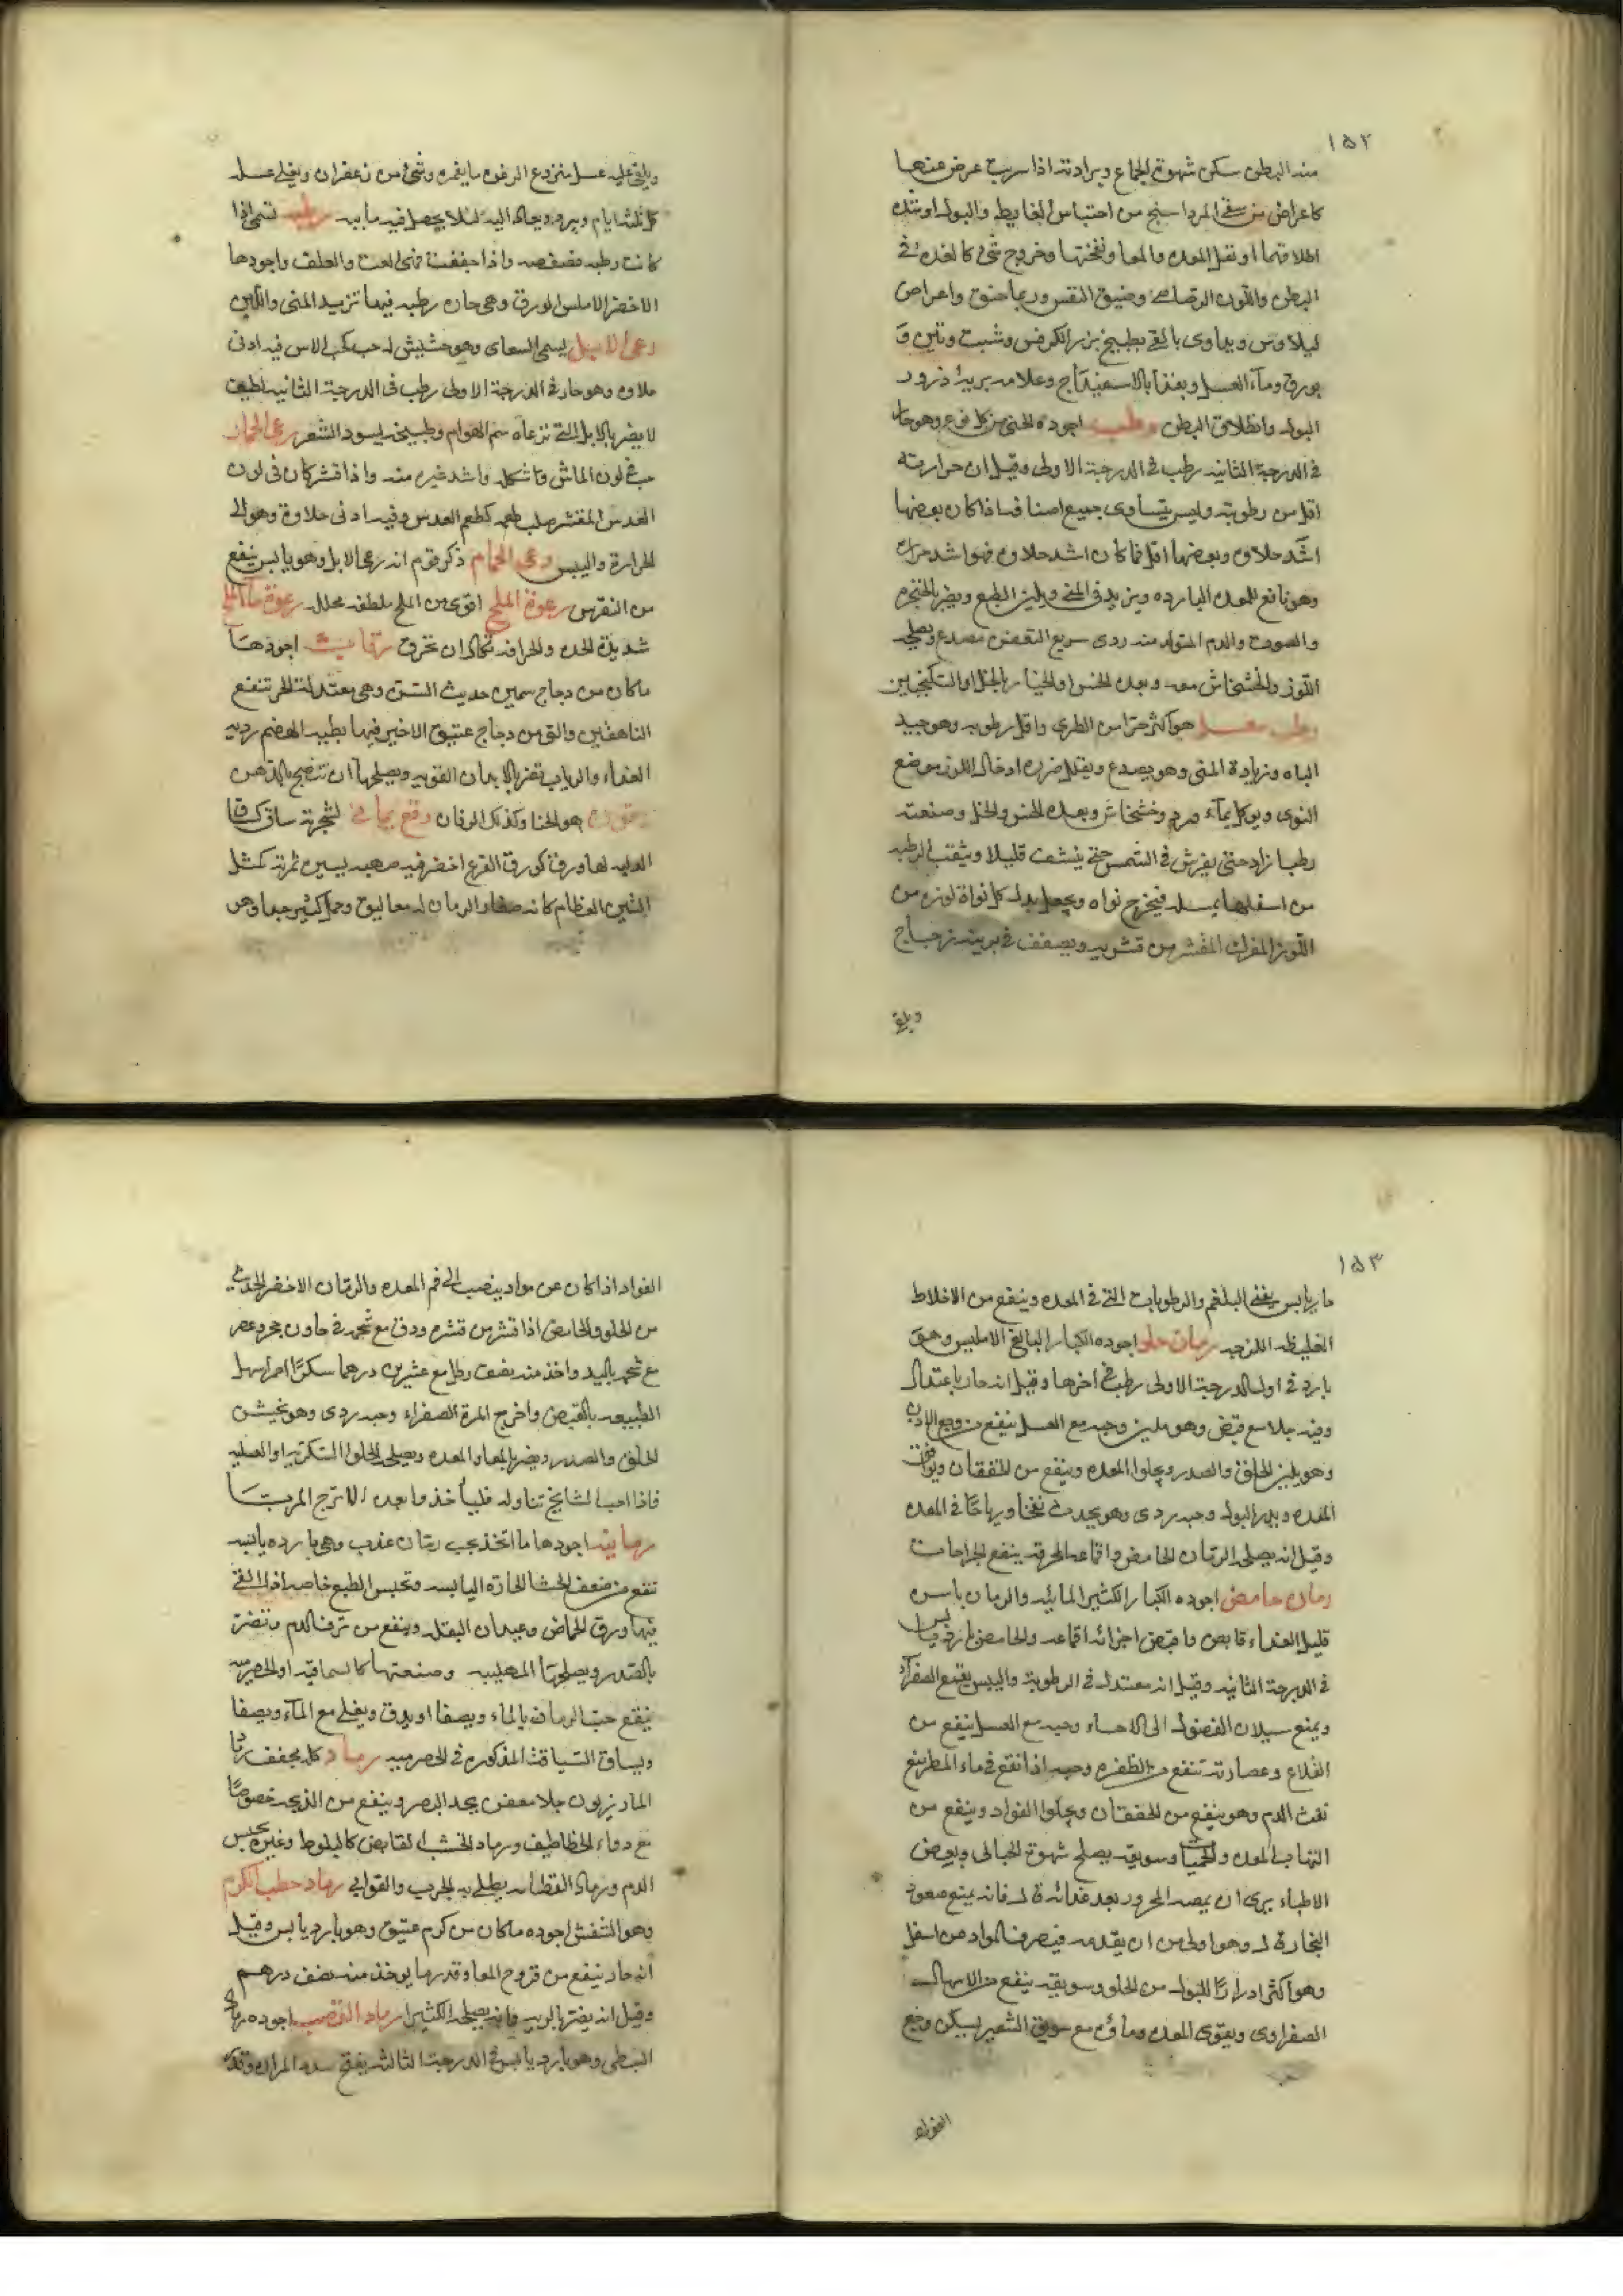 ١٥٢
منه البطن سكن شهوة الجماع وبرادته اذا سربت عرض عنها
كاعراض من سقى المرداسنج من احتباس الغايط والبول او شدة
اطلاقهما او ثقل المعده والمعا ونفختها وخروج شئ كالغده فى
البطن واللون الرصاصى وضيق النفس وربما خنق واعراض
ليلاوس ويداوى بالقى بطبيخ بزر الكرفس وشبت وتين و
بورق وماء العسل وبغذا بالاسفيداج وعلامه بريه ذرور
البول وانطلاق البطن رطب اجوده الجنى من كل نوع وهو حار
فى الدرجة الثانيه رطب فى الدرجة الاولى وقيل ان حرارته
اقل من رطوبته وليس يتساوى جميع اصنافه اذا كان بعضها
اشد حلاوه وبعضها اقل فما كان اشد حلاوه فهو اشد حراره
وهو نافع للمعده البارده ويزيد فى المنى ويلين الطبع ويضر بالحنجره
والصوت والدم المتولد منه ردى سريع التعفن مصدع ويصلحه
اللوز والخشخاش معه وبعده الخس او الخيار بالخل او السكنجبين
رطب معسل هو اكثر حرا من الطرى واقل رطوبه وهو جيد
الباه وزيادة المنى وهو يصدع ويقلل ضرره ادخال اللوز موضع
النوى ويوكل بماء ورد وخشخاش وبعده الخس والخل وصنعته
رطبا زاد حتى يفرش فى الشمس حتى ينشف قليلا ويثقب الرطبه
من اسفلها بمسله فيخرج نواه ويجعل بدل كل نواة لوزه من
اللوز المفرك المقشر من قشريه ويصفف فى برنيه زجاج
ويلقى
ويلقى عليه عسل منزوع الرغوه ما يغمره وشئ من زعفران ويغلى عسله
كل ثلثة ايام ويبرد ويعاد اليه لئلا يحصل فيه مايه رطبه تسمى اذا
كانت رطبه فصفصه واذا جففت فهى القت والعلف واجودها
الاخضر الاملس الورق وهى حاره رطبه فيها تزيد المنى واللبن
رعى الابل يسمى السعاى وهو حشيش له حب كحب الاس فيه ادنى
حلاوه وهو حار فى الدرجة الاولى رطب فى الدرجة الثانيه لطيف
لا يضر بالابل التى ترعاه سم الهوام وطبيخه يسود الشعر رعى الحمار
حب فى لون الماش وشكله واشد غبره منه واذا قشر كان فى لون
العدس المقشر صلب طعمه كطعم العدس وفيه ادنى حلاوة وهو الى
الحرارة واليبس رعى الحمام ذكر قوم انه رعى الابل وهو يابس ينفع
من النقرس رغوة الملح اقوى من الملح ملطف محلل رغوة ماء الملح
شديدة الحده والحرافه تكاد ان تحرق اجودها
ماكان من دجاج سمين حديث السن وهى معتدلة الحر تنفع
الناقهين والتى من دجاج عتيق لاخير فيها بطيه الهضم رديه
الغذاء والرياب تضر بالابدان القويه ويصلحها ان تنضج بالدهن
هو الحنا وكذلك الرفان رقع يمانى لشجرته ساق كساق
الدلبه لها ورق كورق القرع اخضر فيه صهبه يسيره ثمرته كمثل
التين العظام كانه صغار الرمان له معاليق وحمل كثير جدا وهى
١٥٣
حار يابس يفنى البلغم والرطوبات التى فى المعده وينفع من الاخلاط
الغليظه اللزجه رمان حلو اجوده الكبار البالغ الامليس وهو
بارد فى اول الدرجة الاولى رطب فى اخرها وقيل انه حار باعتدال
وفيه جلا مع قبض وهو ملين وحبه مع العسل ينفع من وجع الاذن
وهو يلين الحلق والصدر ويجلوا المعده وينفع من الخفقان ويوافق
المعده ويدر البول وحبه ردى وهو يحدث نفخا ورياحا فى المعده
وقيل انه يصلحه الرمان الحامض واقماعه المحرقه ينفع الجراحات
رمان حامض اجوده الكبار الكثير المائيه والرمان باسره
قليل الغذاء قابض واقبض اجزائه اقماعه والحامض بارد يابس
فى الدرجة الثانيه وقيل انه معتدل فى الرطوبة واليبس يقمع الصفراء
ويمنع سيلان الفضول الى الاحشاء وحبه مع العسل ينفع من
القلاع وعصارته تنفع من الظفره وحبه اذا انقع فى ماء المطر نفع
نفث الدم وهو ينفع من الخفقان ويجلوا الفواد وينفع من
التهاب المعده والحميات وسويقه يصلح شهوة الحبالى وبعض
الاطباء يرى ان يمصه المحرور بعد غذائه قال فانه يمنع صعود
البخار قال وهو اولى من ان يقدمه فيصرف المواد من اسفل
وهو اكثر ادرارا للبول من الحلو وسويقه ينفع من الاسهال
الصفراوى ويقوى المعده وماؤه مع سويق الشعير يسكن وجع
الفواد
الفواد اذا كان عن مواد ينصب الى فم المعده والرمان الاخضر الحديث
من الحلو والحامض اذا قشر من قشره ودق مع شحمه فى هاون حجر وعصر
مع شحمه باليد واخذ منه نصف رطل مع عشرين درهما سكرا احمر اسهل
الطبيعه بالقبض واخرج المرة الصفراء وحبه ردى وهو يخشن
الحلق والصدر ويضر بالمعا والمعده ويصلحه الحلوا السكريه او العسليه
فاذا احب المشايخ تناوله فليأخذوا بعده الاترج المربا
رمانيه اجودها ما اتخذ بحب رمان عذب وهى بارده يابسه
تنفع من ضعف الحشا الحاره اليابسه وتحبس الطبع خاصه اذا القى
فيها ورق الحماض وعيدان البقله وينفع من نزف الدم وتضر
بالصدر ويصلحها المهلبيه وصنعتها كالسماقيه او الحصرميه
ينقع حب الرمان بالماء ويصفا او يدق ويغلى مع الماء ويصفا
ويساق السياقه المذكوره فى الحصرميه رماد كله مجفف رماد
المازريون جلا معفن يحد البصر وينفع من الذبحه خصوصا
مع دواء الخطاطيف ورماد الخشب القابض كالبلوط وغيره يحبس
الدم ورماد القطانى يطلى به الجرب والقوابى رماد حطب الكرم
وهو الشفش اجوده ماكان من كرم عتيق وهو بارد يابس وقيل
انه حار ينفع من قروح المعا وقدر ما يوخذ منه نصف درهم
وقيل انه يضر بالريه وانه يصلحه الكثيرا رماد القصب اجوده رماد
النبطى وهو بارد يابس فى الدرجة الثالثه يفتح سدد المراره وقدر